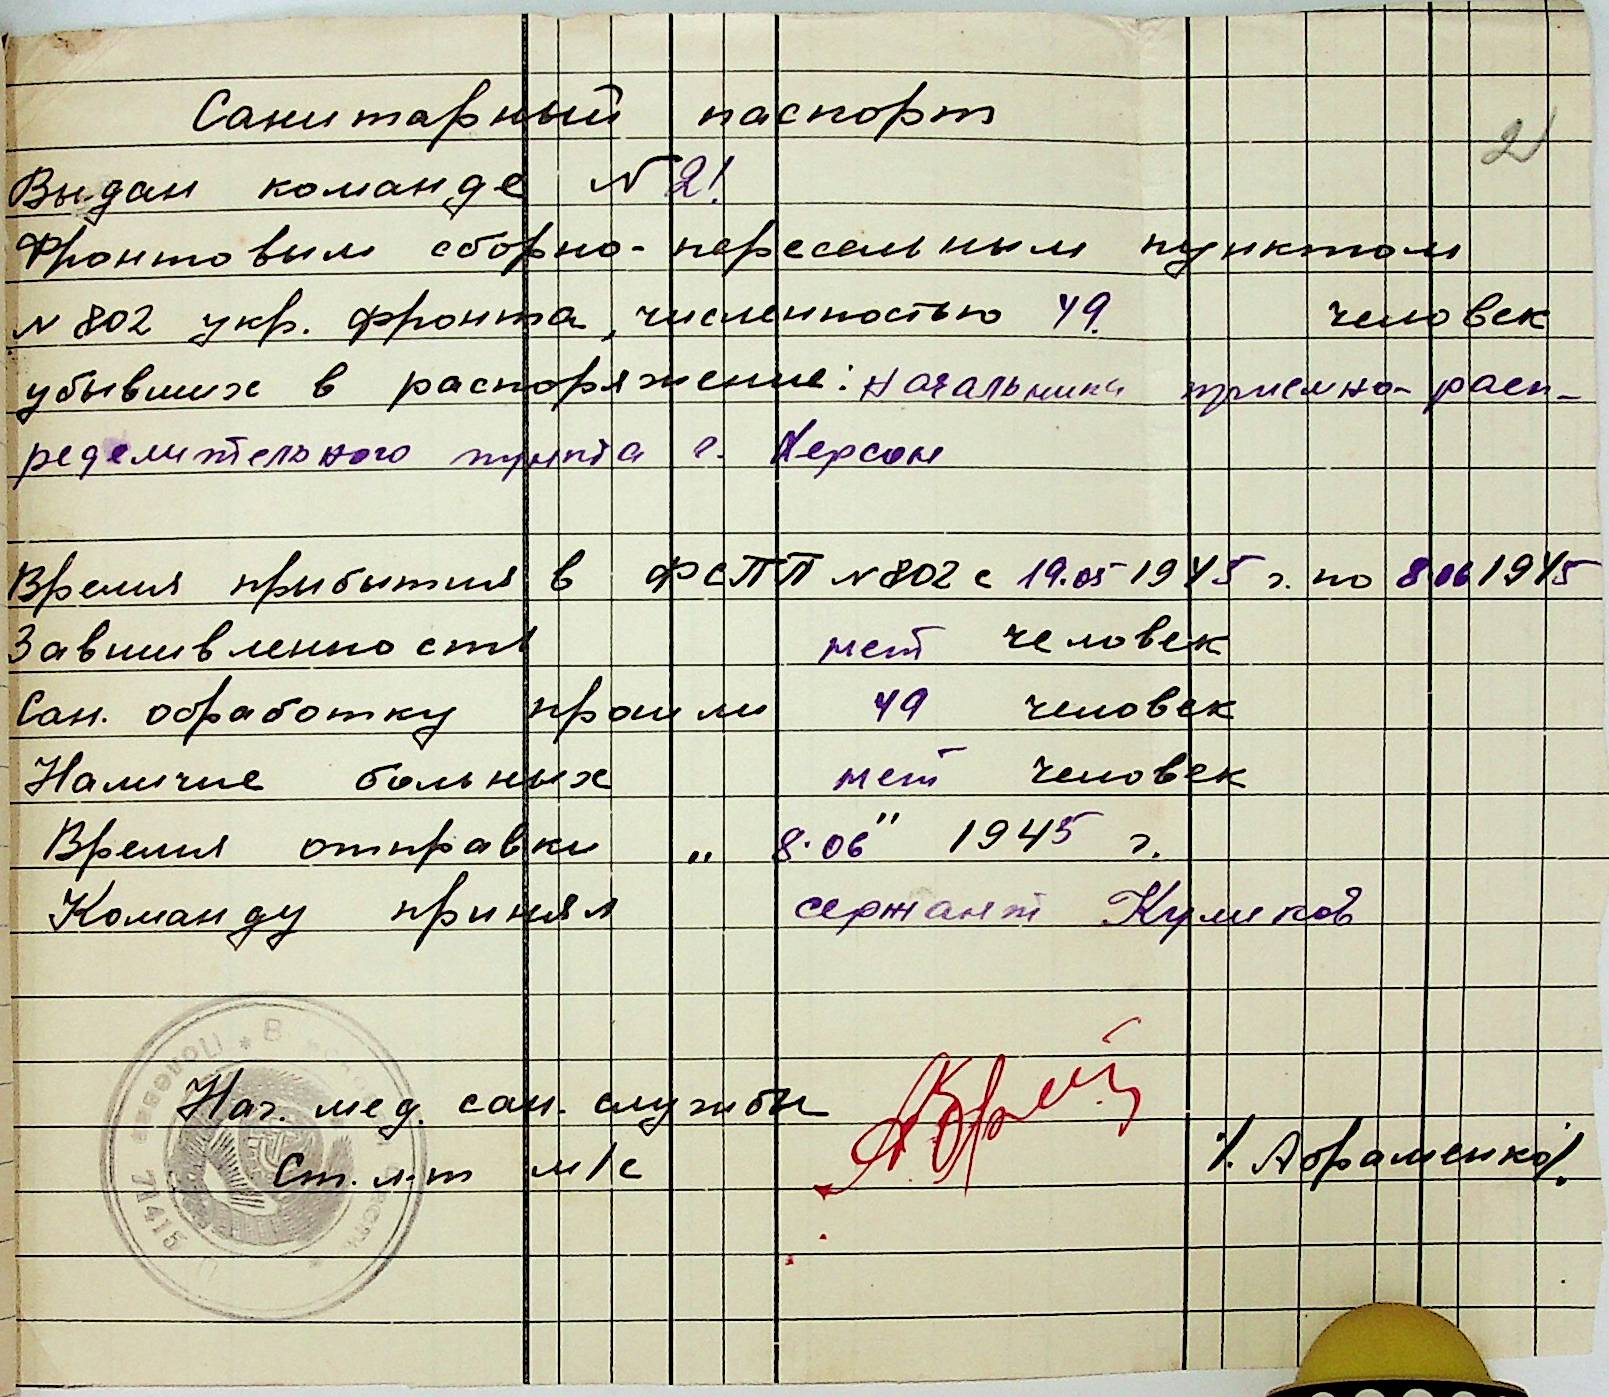 Санитарный паспорт
2
Выдан команде N 2!
Фронтовым сборно-пересельным пунктом
N 802 укр. фронта, численностью 49. человек
убывших в распоряжение: начальника приемно-расп-
ределительного пункта г. Херсон
Время прибытия в ФСПП N 802 с 19.05 1945 г. по 8 06 1945
Завшивленность нет человек
Сан. обработку прошли 49 человек
Наличие больных нет человек
Время отправки „ 8.06 " 1945 г.
Команду принял сержант Куликов
Нач. мед. сан. службы
Ст. л-т м/с /. Абраменко/.
Полевая
71415